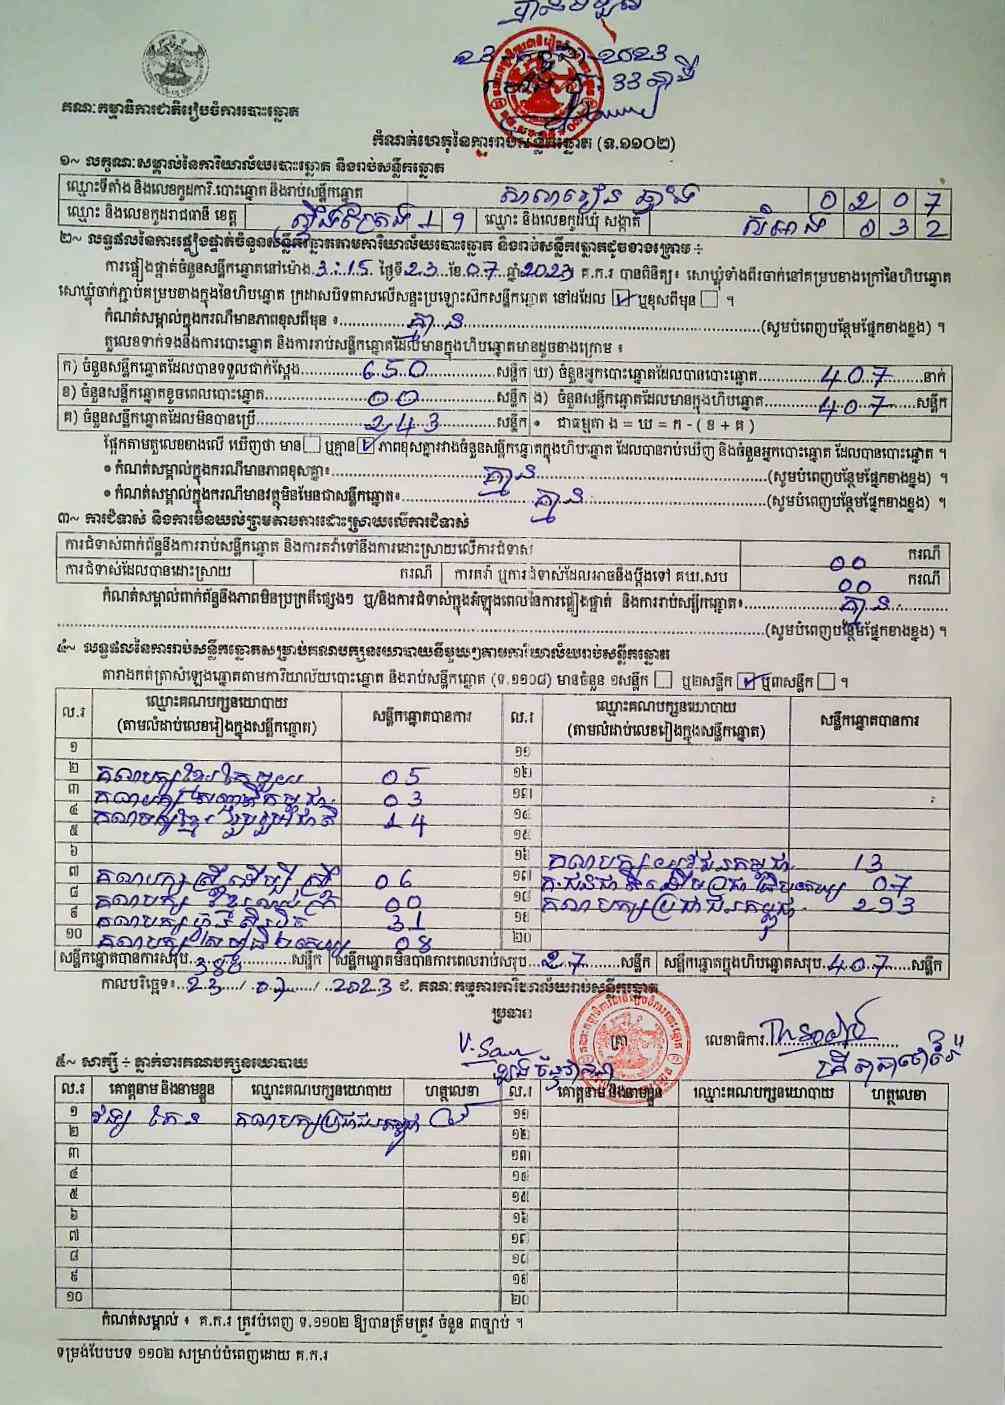 23 2023
គណៈកម្មាធិការជាតិរៀបចំការបោះឆ្នោត
កំណត់ហេតុនៃការរាប់សន្លឹកឆ្នោត (ទ.១១០២)
១~ លក្ខណៈសម្គាល់នៃការិយាល័យបោះឆ្នោត និងរាប់សន្លឹកឆ្នោត
ឈ្មោះទីតាំង និងលេខកូដការិ.បោះឆ្នោត និងរាប់សន្លឹកឆ្នោត សាលារៀន 0207
ឈ្មោះ និងលេខកូដរាជធានី ខេត្ត ស្ទឹងត្រែង 19 ឈ្មោះ និងលេខកូដឃុំ សង្កាត់ 032
២~ លទ្ធផលនៃការផ្ទៀងផ្ទាត់ចំនួនសន្លឹកឆ្នោតតាមការិយាល័យបោះឆ្នោត និងរាប់សន្លឹកឆ្នោតដូចខាងក្រោម ÷
ការផ្ទៀងផ្ទាត់ចំនួនសន្លឹកឆ្នោតនៅម៉ោង 3:15 ថ្ងៃទី 23 ខែ 07 ឆ្នាំ 2023 គ.ក.រ បានពិនិត្យ៖ សោឃ្លុំទាំងពីរចាក់នៅគម្របខាងក្រៅនៃហិបឆ្នោត
សោឃ្លុំចាក់ភ្ជាប់គម្របខាងក្នុងនៃហិបឆ្នោត ក្រដាសបិទពាសលើសន្ទះប្រឡោះស៊កសន្លឹកឆ្នោត នៅដដែល ☑ ឬខុសពីមុន ☐ ។
កំណត់សម្គាល់ក្នុងករណីមានភាពខុសពីមុន ៖ គ្មាន (សូមបំពេញបន្ថែមផ្នែកខាងខ្នង) ។
តួលេខទាក់ទងនឹងការបោះឆ្នោត និងការរាប់សន្លឹកឆ្នោតដែលមានក្នុងហិបឆ្នោតមានដូចខាងក្រោម ៖
ក) ចំនួនសន្លឹកឆ្នោតដែលបានទទួលជាក់ស្តែង 650 សន្លឹក ឃ) ចំនួនអ្នកបោះឆ្នោតដែលបានបោះឆ្នោត 407 នាក់
ខ) ចំនួនសន្លឹកឆ្នោតខូចពេលបោះឆ្នោត 00 សន្លឹក ង) ចំនួនសន្លឹកឆ្នោតដែលមានក្នុងហិបឆ្នោត 407 សន្លឹក
គ) ចំនួនសន្លឹកឆ្នោតដែលមិនបានប្រើ 243 សន្លឹក • ជាធម្មតា ង = ឃ = ក - ( ខ + គ )
ផ្អែកតាមតួលេខខាងលើ ឃើញថា មាន ☐ ឬគ្មាន ☑ ភាពខុសគ្នារវាងចំនួនសន្លឹកឆ្នោតក្នុងហិបឆ្នោត ដែលបានរាប់ឃើញ និងចំនួនអ្នកបោះឆ្នោត ដែលបានបោះឆ្នោត ។
• កំណត់សម្គាល់ក្នុងករណីមានភាពខុសគ្នា៖ គ្មាន (សូមបំពេញបន្ថែមផ្នែកខាងខ្នង) ។
• កំណត់សម្គាល់ក្នុងករណីមានវត្ថុមិនមែនជាសន្លឹកឆ្នោត៖ គ្មាន (សូមបំពេញបន្ថែមផ្នែកខាងខ្នង) ។
៣~ ការជំទាស់ និងការមិនយល់ព្រមតាមការដោះស្រាយលើការជំទាស់
ការជំទាស់ពាក់ព័ន្ធនឹងការរាប់សន្លឹកឆ្នោត និងការតវ៉ាទៅនឹងការដោះស្រាយលើការជំទាស់ 00 ករណី
ការជំទាស់ដែលបានដោះស្រាយ ករណី ការតវ៉ា ឬការជំទាស់ដែលអាចនឹងប្តឹងទៅ គឃ.សប 00 ករណី
កំណត់សម្គាល់ពាក់ព័ន្ធនឹងភាពមិនប្រក្រតីផ្សេងៗ ឬ/និងការជំទាស់ក្នុងអំឡុងពេលនៃការផ្ទៀងផ្ទាត់ និងការរាប់សន្លឹកឆ្នោត៖ គ្មាន
(សូមបំពេញបន្ថែមផ្នែកខាងខ្នង) ។
៤~ លទ្ធផលនៃការរាប់សន្លឹកឆ្នោតសម្រាប់គណបក្សនយោបាយនីមួយៗតាមការិយាល័យរាប់សន្លឹកឆ្នោត
តារាងកត់ត្រាសំឡេងឆ្នោតតាមការិយាល័យបោះឆ្នោត និងរាប់សន្លឹកឆ្នោត (ទ.១១០៨) មានចំនួន ១សន្លឹក ☐ ឬ២សន្លឹក ☑ ឬ៣សន្លឹក ☐ ។
ល.រ ឈ្មោះគណបក្សនយោបាយ (តាមលំដាប់លេខរៀងក្នុងសន្លឹកឆ្នោត) សន្លឹកឆ្នោតបានការ ល.រ ឈ្មោះគណបក្សនយោបាយ (តាមលំដាប់លេខរៀងក្នុងសន្លឹកឆ្នោត) សន្លឹកឆ្នោតបានការ
១ ១១
២ គណបក្សខ្មែរ 05 ១២
៣ គណបក្ស 03 ១៣
៤ គណបក្សខ្មែររួបរួមជាតិ 14 ១៤
៥ ១៥
៦ ១៦ គណបក្សយុវជនកម្ពុជា 13
៧ គណបក្សស្ត្រីដើម្បីស្ត្រី 06 ១៧ 07
៨ គណបក្ស 00 ១៨ គណបក្សប្រជាជនកម្ពុជា 293
៩ គណបក្សហ្វ៊ុនស៊ិនប៉ិច 31 ១៩
១០ គណបក្ស 08 ២០
សន្លឹកឆ្នោតបានការសរុប 380 សន្លឹក សន្លឹកឆ្នោតមិនបានការពេលរាប់សរុប 27 សន្លឹក សន្លឹកឆ្នោតក្នុងហិបឆ្នោតសរុប 407 សន្លឹក
កាលបរិច្ឆេទ៖ 23 / 07 / 2023 ជ. គណៈកម្មការការិយាល័យរាប់សន្លឹកឆ្នោត
ប្រធាន
លេខាធិការ
៥~ សាក្សី ÷ ភ្នាក់ងារគណបក្សនយោបាយ
ល.រ គោត្តនាម និងនាមខ្លួន ឈ្មោះគណបក្សនយោបាយ ហត្ថលេខា ល.រ គោត្តនាម និងនាមខ្លួន ឈ្មោះគណបក្សនយោបាយ ហត្ថលេខា
១ គណបក្សប្រជាជនកម្ពុជា ១១
២ ១២
៣ ១៣
៤ ១៤
៥ ១៥
៦ ១៦
៧ ១៧
៨ ១៨
៩ ១៩
១០ ២០
កំណត់សម្គាល់ ៖ គ.ក.រ ត្រូវបំពេញ ទ.១១០២ ឱ្យបានត្រឹមត្រូវ ចំនួន ៣ច្បាប់ ។
ទម្រង់បែបបទ ១១០២ សម្រាប់បំពេញដោយ គ.ក.រ